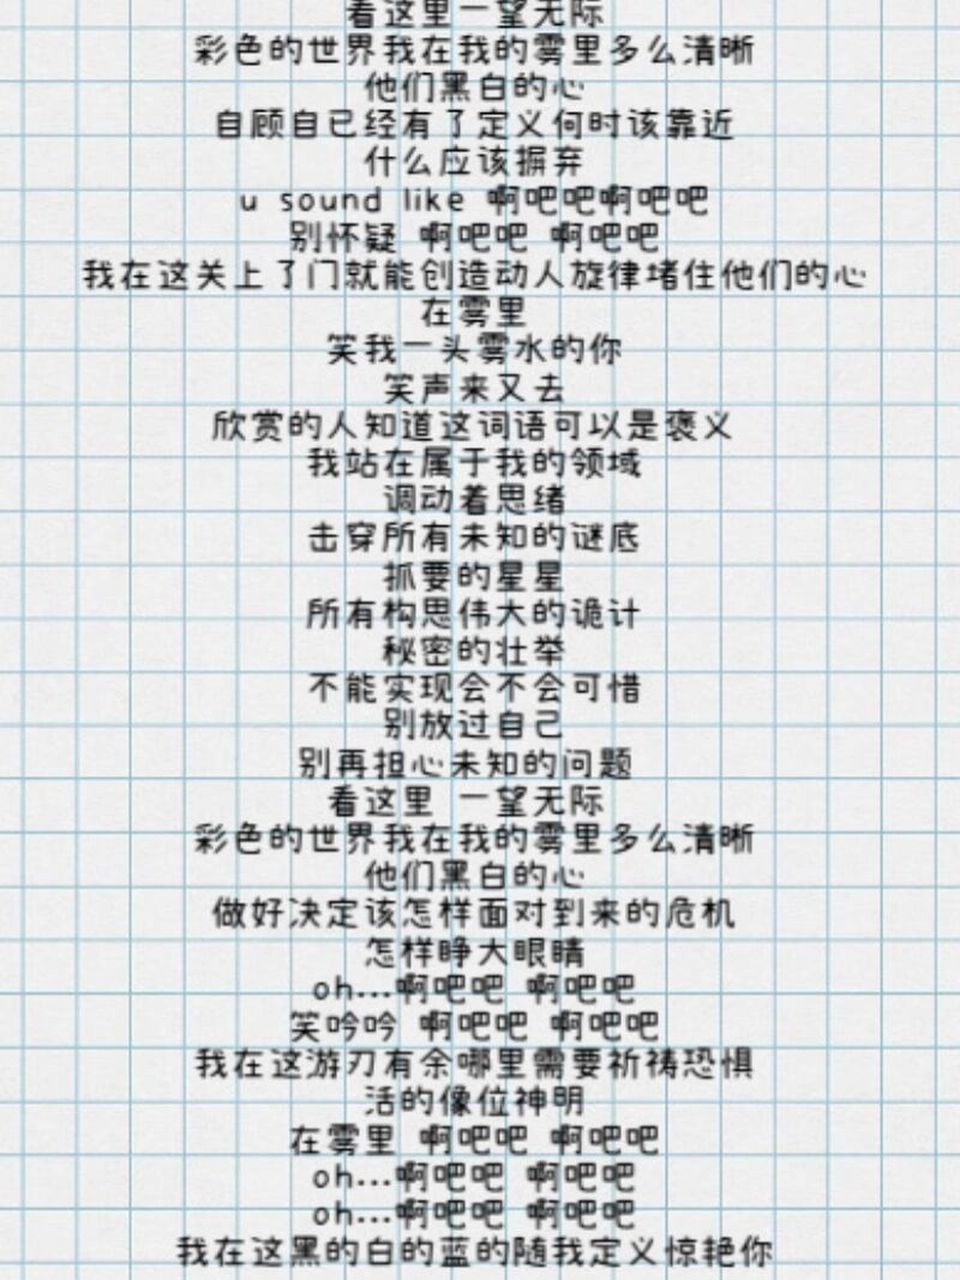 看这里一望无际
彩色的世界我在我的雾里多么清晰
他们黑白的心
自顾自已经有了定义何时该靠近
什么应该摒弃
u sound like 啊吧吧啊吧吧
别怀疑 啊吧吧 啊吧吧
我在这关上了门就能创造动人旋律堵住他们的心
在雾里
笑我一头雾水的你
笑声来又去
欣赏的人知道这词语可以是褒义
我站在属于我的领域
调动着思绪
击穿所有未知的谜底
抓要的星星
所有构思伟大的诡计
秘密的壮举
不能实现会不会可惜
别放过自己
别再担心未知的问题
看这里 一望无际
彩色的世界我在我的雾里多么清晰
他们黑白的心
做好决定该怎样面对到来的危机
怎样睁大眼睛
oh...啊吧吧 啊吧吧
笑吟吟 啊吧吧 啊吧吧
我在这游刃有余哪里需要祈祷恐惧
活的像位神明
在雾里 啊吧吧 啊吧吧
oh...啊吧吧 啊吧吧
oh...啊吧吧 啊吧吧
我在这黑的白的蓝的随我定义惊艳你